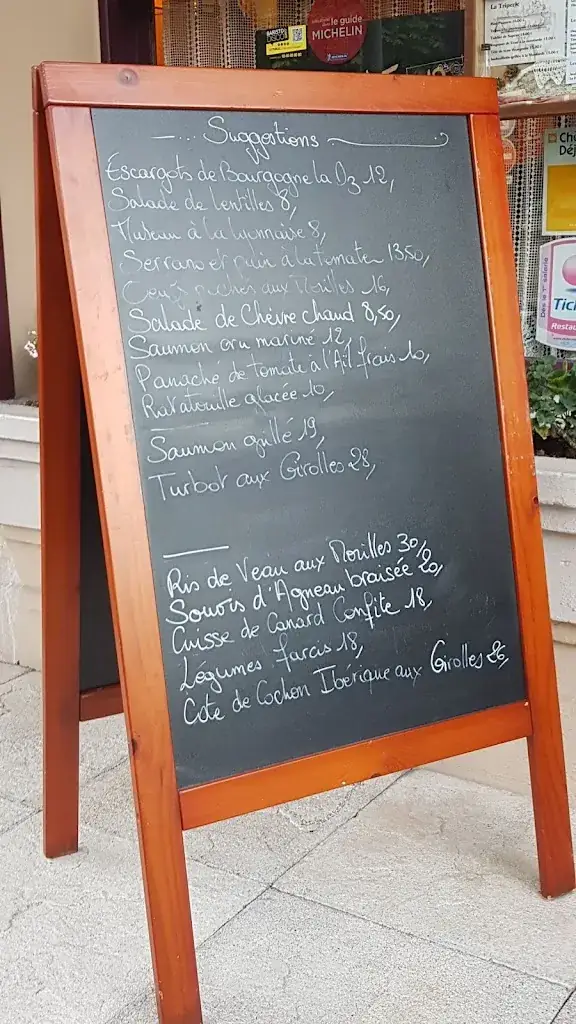 Suggestions
Escargots de Bourgogne la Dz 12,
Salade de lentilles 8,
Museau à la lyonnaise 8,
Serrano et pain à la tomate 13,50,
pochés aux Morilles 16,
Salade de Chèvre chaud 8,50,
Saumon cru mariné 12,
Panache de tomate à l'Ail frais 10,
Ratatouille glacée 10,
Saumon grillé 19,
Turbot aux Girolles 28,
Ris de Veau aux Morilles 30,
Souris d'Agneau braisée 20,
Cuisse de Canard Confite 18,
Légumes farcis 18,
Cote de Cochon Ibérique aux Girolles 26,
le guide
MICHELIN
La Triperie